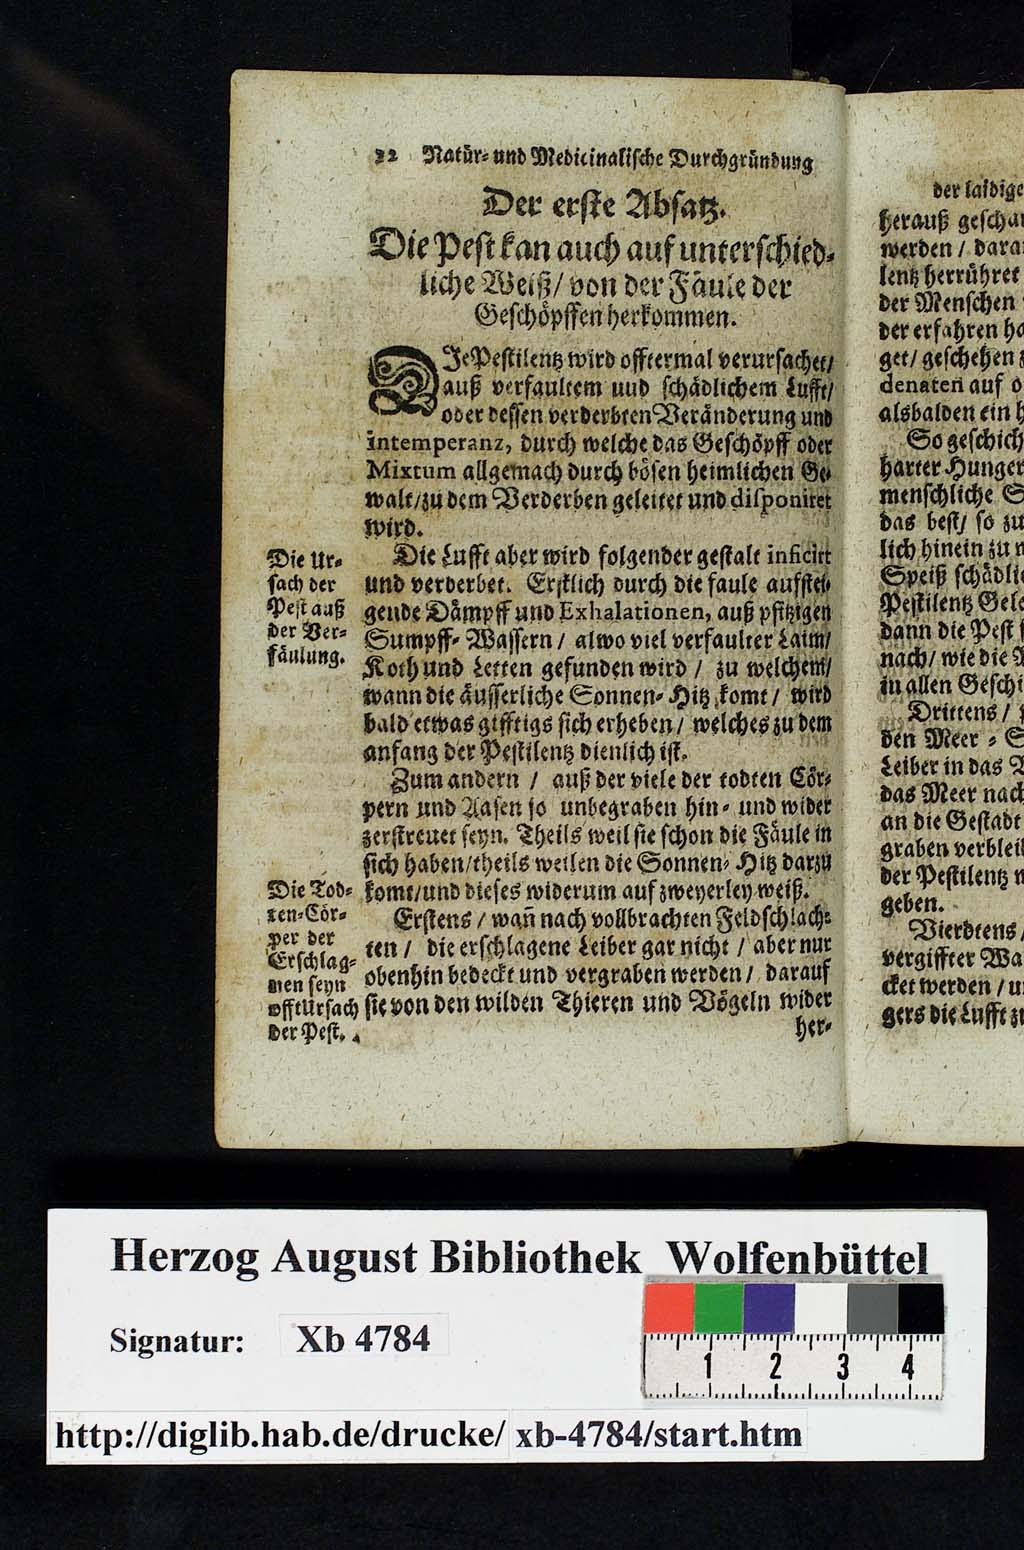 32 Natür- und Medicinalische Durchgründung
Der erste Absatz.
Die Pest kan auch auf unterschied-
liche Weiß/ von der Fäule der
Geschöpffen herkommen.
DJe Pestilentz wird offtermal verursachet/
auß verfaultem uud schädlichem Lufft/
oder dessen verderbten Veränderung und
intemperanz, durch welche das Geschöpff oder
Mixtum allgemach durch bösen heimlichen Ge-
walt/zu dem Verderben geleitet und disponiret
wird.
Die Ur-
sach der
Pest auß
der Ver-
fäulung.
Die Lufft aber wird folgender gestalt inficirt
und verderbet. Erstlich durch die faule aufstei-
gende Dämpff und Exhalationen, auß pfitzigen
Sumpff- Wassern / alwo viel verfaulter Laim/
Koth und Letten gefunden wird / zu welchem/
wann die äusserliche Sonnen- Hitz komt / wird
bald etwas gifftigs sich erheben / welches zu dem
anfang der Pestilentz dienlich ist.
Zum andern / auß der viele der todten Cör-
pern und Aasen so unbegraben hin- und wider
zerstreuet seyn. Theils weil sie schon die Fäule in
sich haben/theils weilen die Sonnen- Hitz darzu
komt/und dieses widerum auf zweyerley weiß.
Die Tod-
ten-Cör-
per der
Erschlag-
nen seyn
offt Ursach
der Pest.
Erstens / wañ nach vollbrachten Feldschlach-
ten / die erschlagene Leiber gar nicht / aber nur
obenhin bedeckt und vergraben werden / darauf
sie von den wilden Thieren und Vögeln wider
her-
der laidige
herauß
werden /
lentz herrühret
der Menschen
der erfahren
get/ geschehen
denaten auf
alsbalden ein
So
harter Hunger
menschliche
das best/ so zu
lich hinein zu
Speiß
Pestilentz
dann die Pest
nach/ wie die
in allen
Drittens /
den Meer -
Leiber in das
das Meer nach
an die Gestadt
graben
der Pestilentz
geben.
Vierdtens/
vergiffter
cket werden /
gers die Lufft
Herzog August Bibliothek Wolfenbüttel
Signatur: Xb 4784
1 2 3 4
http://diglib.hab.de/drucke/ xb-4784/start.htm